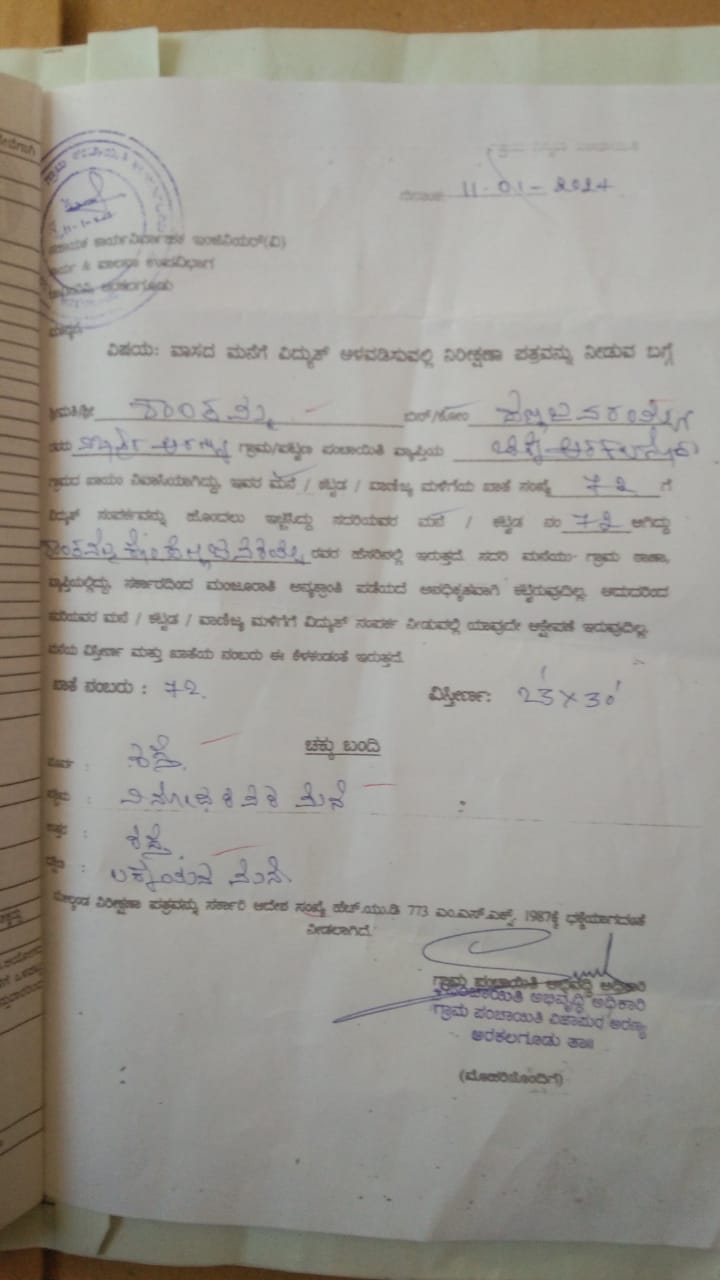 ದಿನಾಂಕ: 11-01-2024
ಸಹಾಯಕ ಕಾರ್ಯನಿರ್ವಾಹಕ ಇಂಜಿನಿಯರ್(ವಿ)
ಕಾರ್ಯ & ಪಾಲನಾ ಉಪವಿಭಾಗ
ಅರಕಲಗೂಡು
ಮಾನ್ಯರೆ
ವಿಷಯ: ವಾಸದ ಮನೆಗೆ ವಿದ್ಯುತ್ ಅಳವಡಿಸುವಲ್ಲಿ ನಿರೀಕ್ಷಣಾ ಪತ್ರವನ್ನು ನೀಡುವ ಬಗ್ಗೆ
ಶ್ರೀಮತಿ/ಶ್ರೀ ಶಾಂತಮ್ಮ ಬಿನ್/ಕೋಂ
ಗ್ರಾಮ/ಪಟ್ಟಣ ಪಂಚಾಯಿತಿ ವ್ಯಾಪ್ತಿಯ
ಗ್ರಾಮದ ಖಾಯಂ ನಿವಾಸಿಯಾಗಿದ್ದು, ಇವರ ಮನೆ / ಕಟ್ಟಡ / ವಾಣಿಜ್ಯ ಮಳಿಗೆಯ ಖಾತೆ ಸಂಖ್ಯೆ ೭೨ ಗೆ
ವಿದ್ಯುತ್ ಸಂಪರ್ಕವನ್ನು ಹೊಂದಲು ಇಚ್ಛಿಸಿದ್ದು ಸದರಿಯವರ ಮನೆ / ಕಟ್ಟಡ ನಂ ೭೨ ಆಗಿದ್ದು
ರವರ ಹೆಸರಿನಲ್ಲಿ ಇರುತ್ತದೆ. ಸದರಿ ಮನೆಯು ಗ್ರಾಮ ಠಾಣಾ,
ವ್ಯಾಪ್ತಿಯಲ್ಲಿದ್ದು, ಸರ್ಕಾರದಿಂದ ಮಂಜೂರಾತಿ ಅನ್ಯಕ್ರಾಂತಿ ಪಡೆಯದೆ ಅನಧಿಕೃತವಾಗಿ ಕಟ್ಟಿರುವುದಿಲ್ಲ. ಆದುದರಿಂದ
ಸದರಿಯವರ ಮನೆ / ಕಟ್ಟಡ / ವಾಣಿಜ್ಯ ಮಳಿಗೆಗೆ ವಿದ್ಯುತ್ ಸಂಪರ್ಕ ನೀಡುವಲ್ಲಿ ಯಾವುದೇ ಆಕ್ಷೇಪಣೆ ಇರುವುದಿಲ್ಲ.
ಮನೆಯ ವಿಸ್ತೀರ್ಣ ಮತ್ತು ಖಾತೆಯ ನಂಬರು ಈ ಕೆಳಕಂಡಂತೆ ಇರುತ್ತದೆ.
ಖಾತೆ ನಂಬರು : ೭೨. ವಿಸ್ತೀರ್ಣ: 23' X 30'
ಚಕ್ಕು ಬಂದಿ
ಪೂರ್ವ : ರಸ್ತೆ
ಪಶ್ಚಿಮ : ಮನೆ
ಉತ್ತರ : ರಸ್ತೆ
ದಕ್ಷಿಣ : ಮನೆ.
ಮೇಲ್ಕಂಡ ನಿರೀಕ್ಷಣಾ ಪತ್ರವನ್ನು ಸರ್ಕಾರಿ ಆದೇಶ ಸಂಖ್ಯೆ ಹೆಚ್.ಯು.ಡಿ 773 ಎಂ.ಎನ್.ಎಕ್ಸ್. 1987ಕ್ಕೆ ಧಕ್ಕೆಯಾಗದಂತೆ
ನೀಡಲಾಗಿದೆ.
ಗ್ರಾಮ ಪಂಚಾಯಿತಿ ಅಭಿವೃದ್ಧಿ ಅಧಿಕಾರಿ
ಪಂಚಾಯಿತಿ ಅಭಿವೃದ್ಧಿ ಅಧಿಕಾರಿ
ಗ್ರಾಮ ಪಂಚಾಯಿತಿ ವಿಜಾಪುರ ಅರಣ್ಯ
ಅರಕಲಗೂಡು ತಾ॥
(ಮೊಹರಿನೊಂದಿಗೆ)